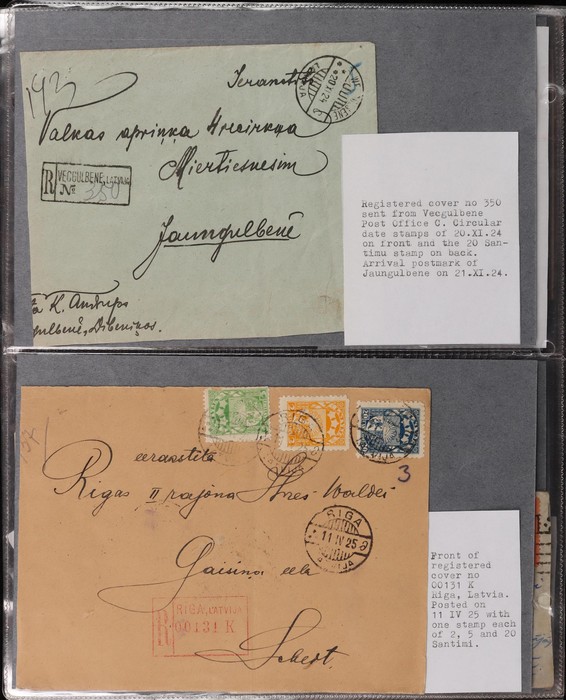 Ierakstīti
Valkas apriņķa
Miertiesnesim
Jaungulbenē
R VECGULBENE, LATVIJA
№ 350
20.XI.24
K. Andreps
Registered cover no 350
sent from Vecgulbene
Post Office C. Circular
date stamps of 20.XI.24
on front and the 20 San-
timu stamp on back.
Arrival postmark of
Jaungulbene on 21.XI.24.
eeraksstitā
Rigas II rajona
Gaisiņa eelā
3
RIGA
11 IV 25
RIGA, LATVIJA
00131 K
Front of
registered
cover no
00131 K
Riga, Latvia.
Posted on
11 IV 25 with
one stamp each
of 2, 5 and 20
Santimi.